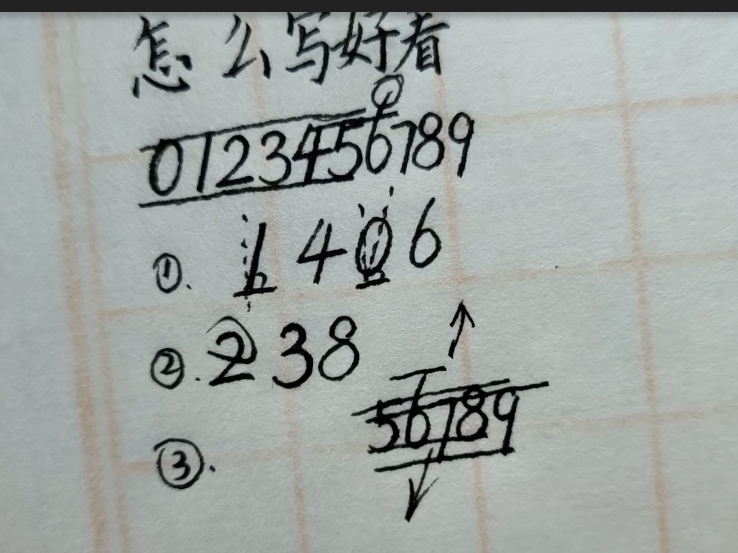 怎么写好看
0123456789
①. 1406
②. 238
③. 56789